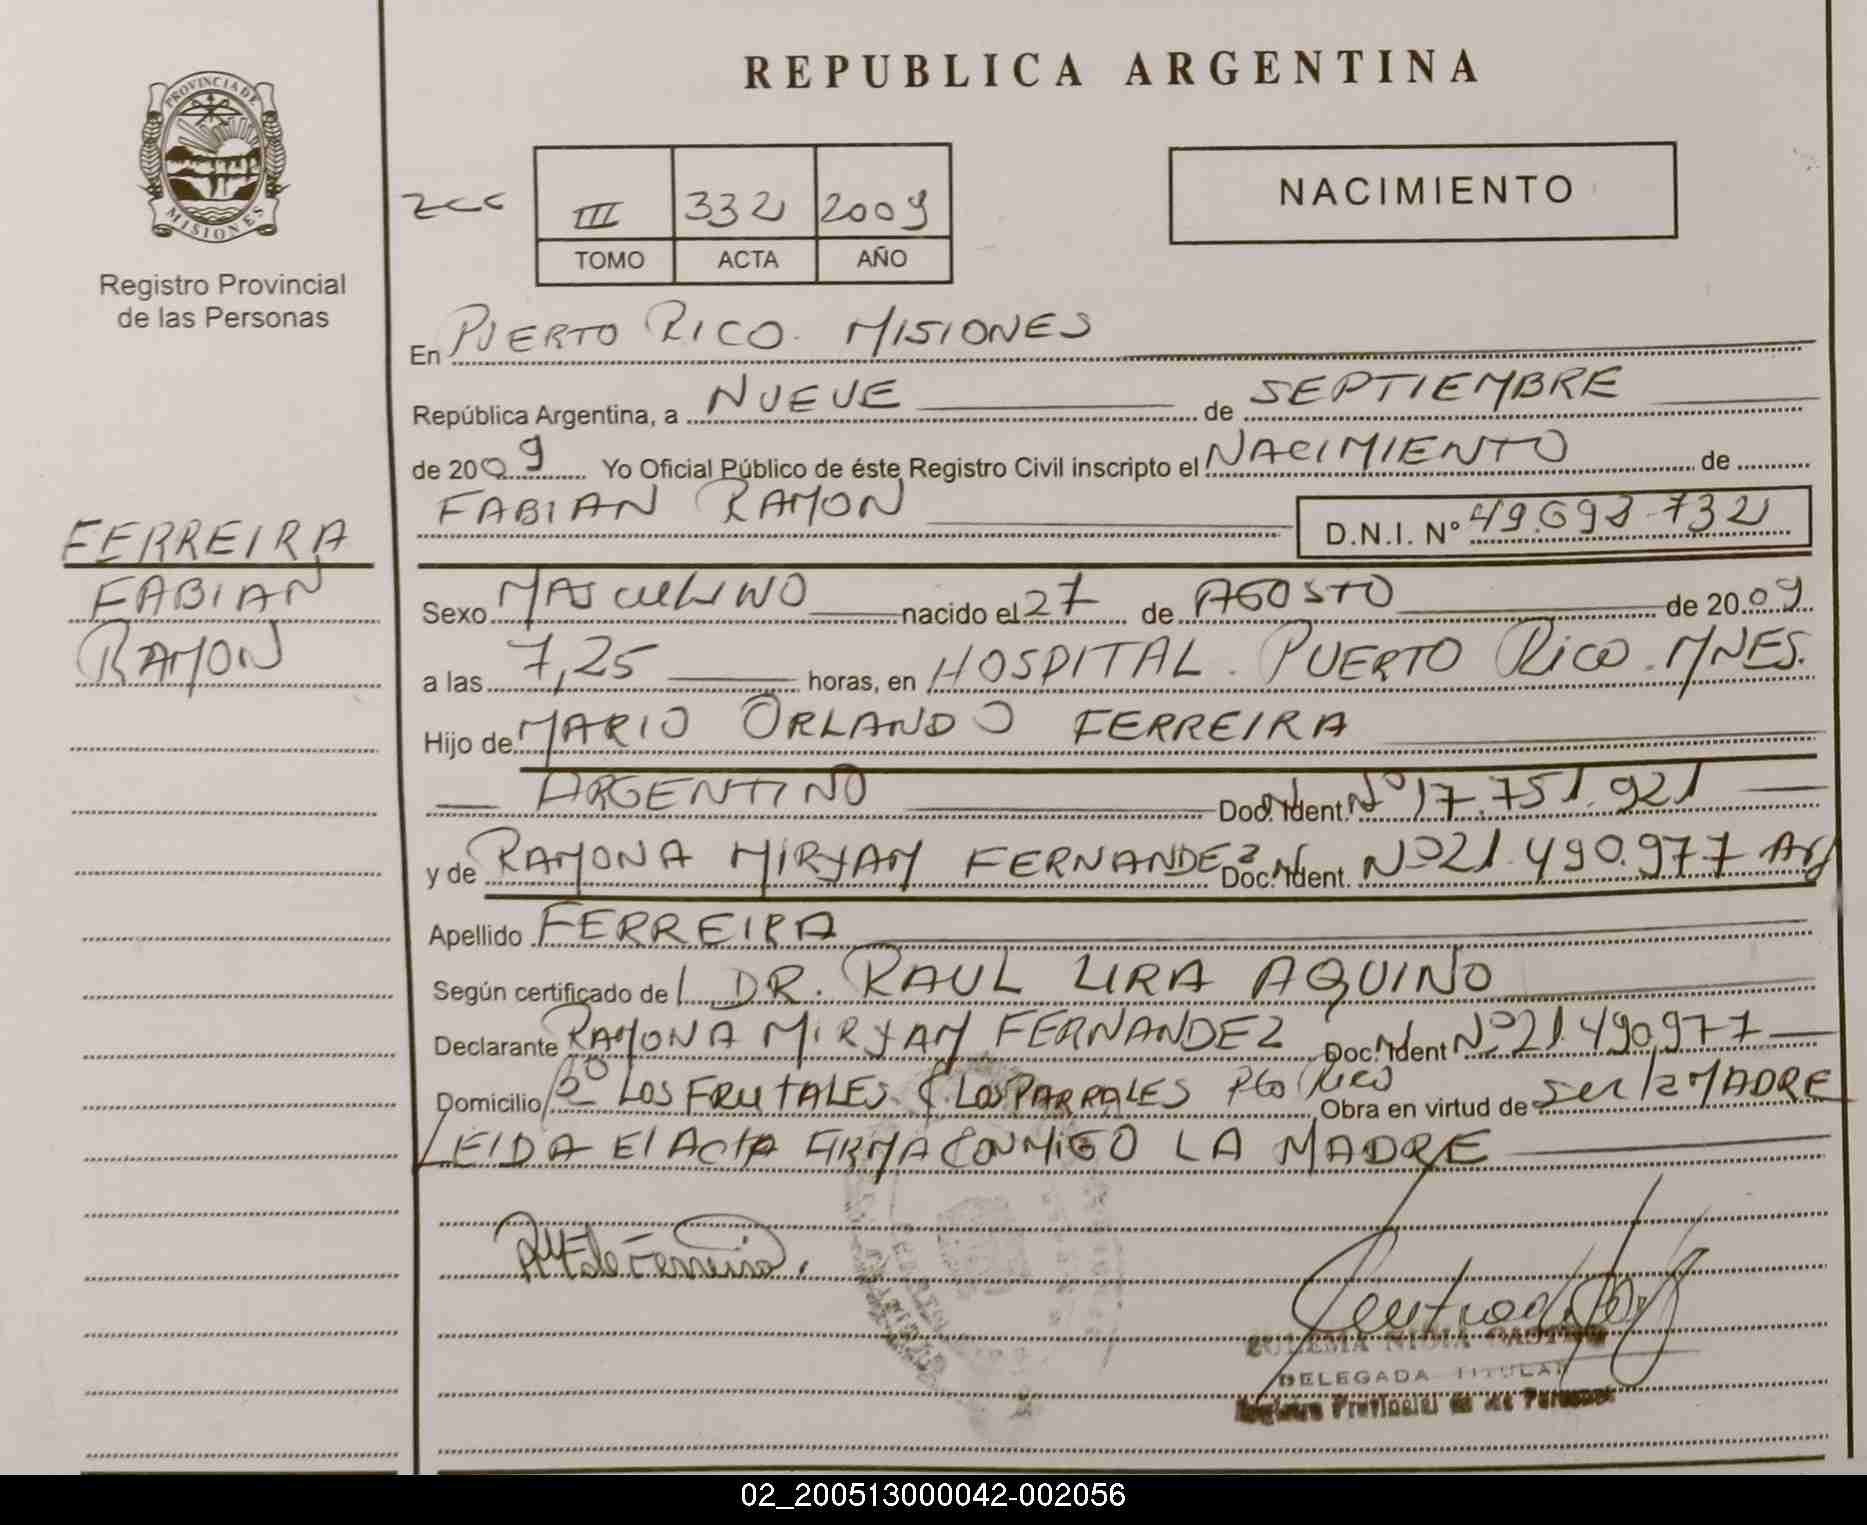 PROVINCIA DE
MISIONES
Registro Provincial
de las Personas
FERREIRA
FABIAN
RAMON
REPUBLICA ARGENTINA
III 332 2009
TOMO ACTA AÑO
NACIMIENTO
En PUERTO RICO. MISIONES
República Argentina, a NUEVE de SEPTIEMBRE
de 2009 Yo Oficial Público de éste Registro Civil inscripto el NACIMIENTO de
FABIAN RAMON D.N.I. Nº 49.693.732
Sexo MASCULINO nacido el 27 de AGOSTO de 2009
a las 7,25 horas, en HOSPITAL. PUERTO RICO. MNES.
Hijo de MARIO ORLANDO FERREIRA
ARGENTINO Doc. Ident. Nº 17.751.921
y de RAMONA MIRYAM FERNANDEZ Doc. Ident. Nº 21.490.977 Arg
Apellido FERREIRA
Según certificado del DR. RAUL LIRA AQUINO
Declarante RAMONA MIRYAM FERNANDEZ Doc. Ident Nº 21.490.977
Domicilio Bº LOS FRUTALES LOS PARRALES Pto Rico Obra en virtud de ser la MADRE
LEIDA El ActA FIRMA CONMIGO LA MADRE
RMF de Ferreira.
DELEGADA TITULAR
Registro Provincial de las Personas
02_200513000042-002056